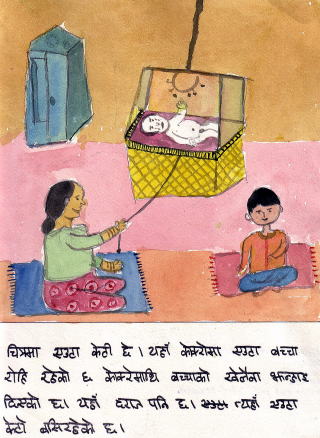 चित्रमा एउटा केटी छे । यहाँ कोक्रोमा एउटा बच्चा
रोहि रहेको छ कोक्रोमाथि बच्चाको खेलौना झुन्ड्याइ
दिएको छ। यहाँ दराज पनि छ। त्यहाँ एउटा
केटो बसिरहेको छ।